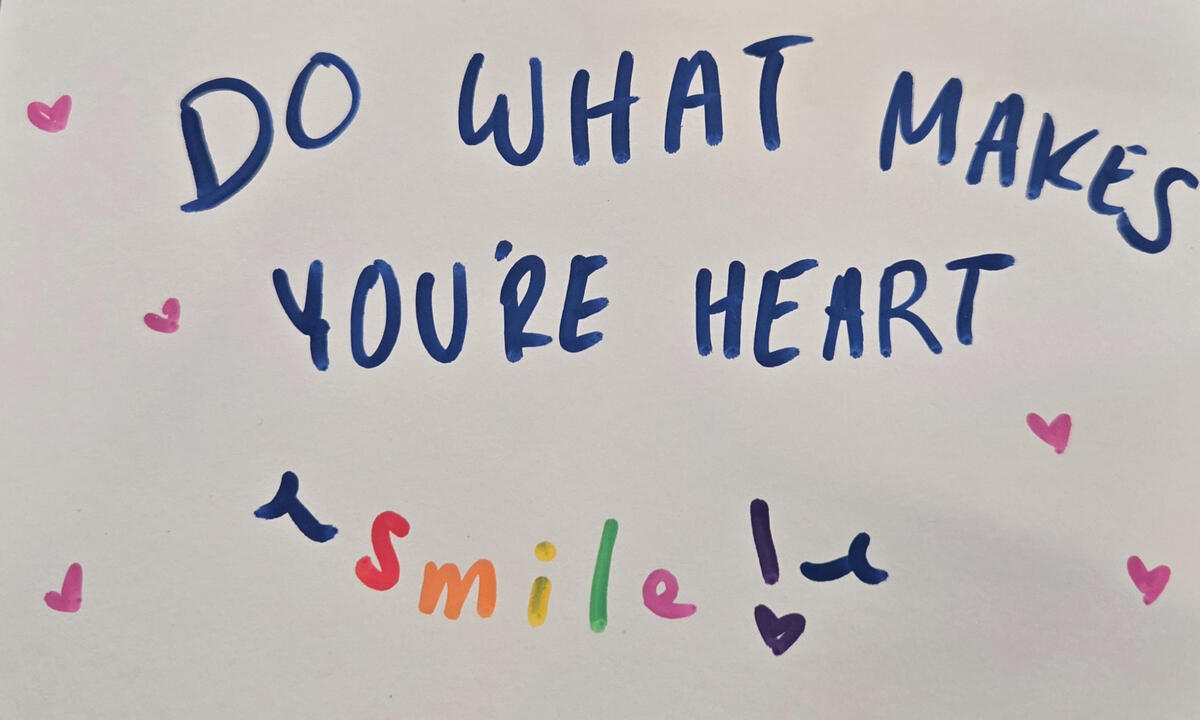 DO WHAT MAKES
YOU'RE HEART
smile!